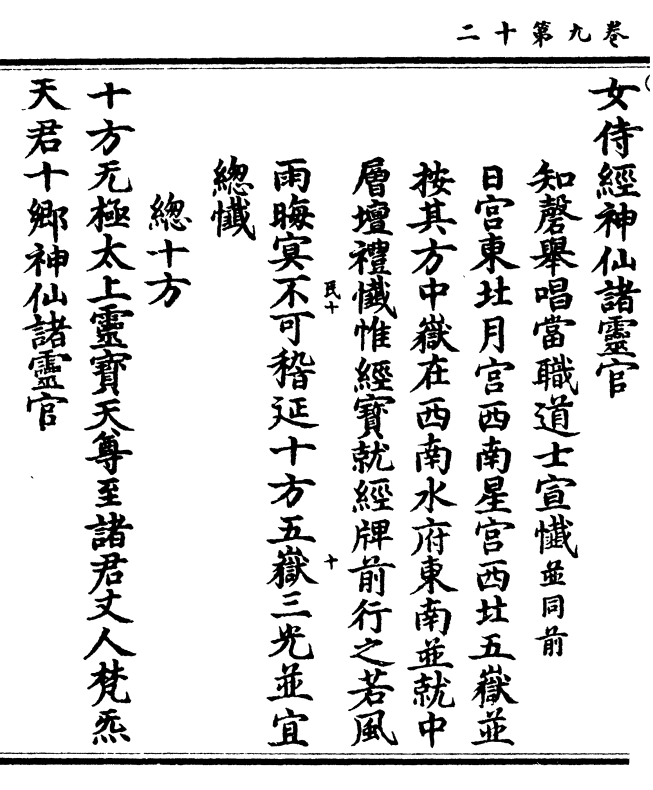 卷九第十二
女侍經神仙諸靈官
知磬舉唱當職道士宣懴並同前
日宮東北月宮西南星宮西北五嶽並
按其方中嶽在西南水府東南並就中
層壇禮懴惟經寶就經牌前行之若風
民十
十
雨晦冥不可稽延十方五嶽三光並宜
總懴
總十方
十方无極太上靈寶天尊至諸君丈人梵炁
天君十鄉神仙諸靈官